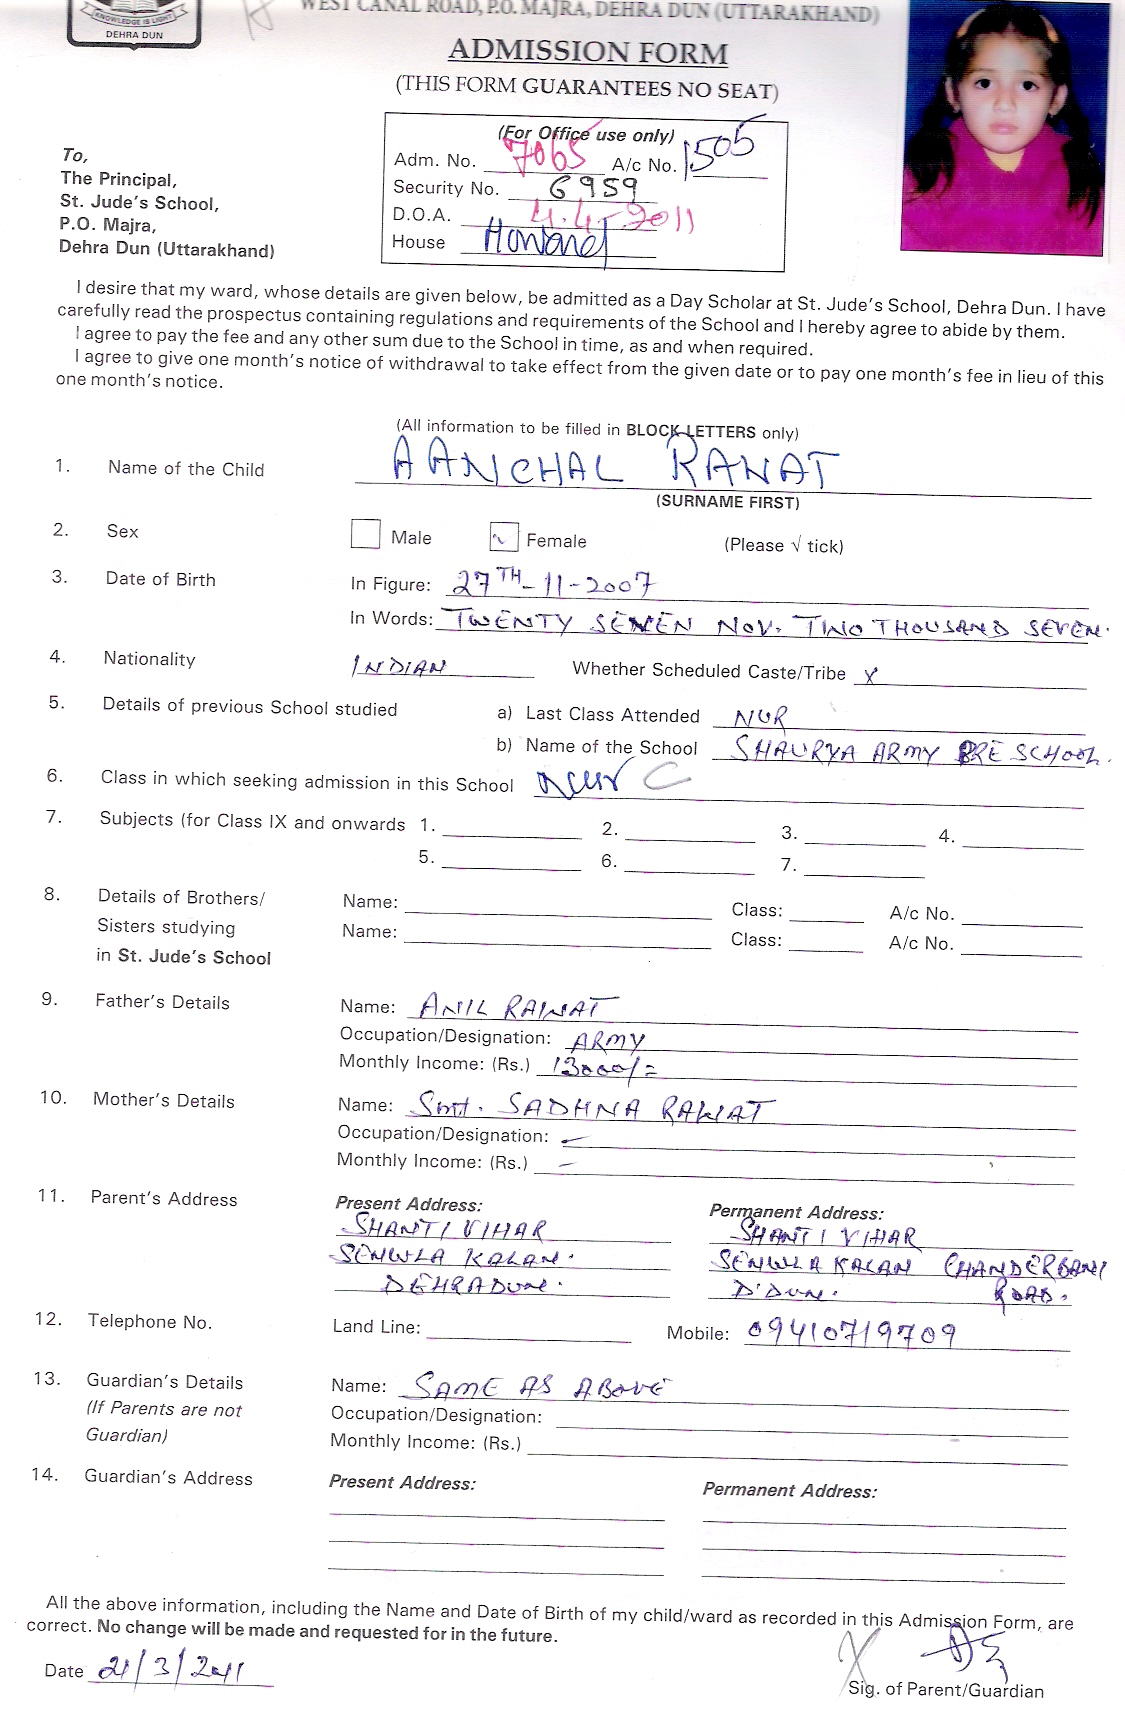 KNOWLEDGE IS LIGHT
DEHRA DUN
WEST CANAL ROAD, P.O. MAJRA, DEHRA DUN (UTTARAKHAND)
ADMISSION FORM
(THIS FORM GUARANTEES NO SEAT)
(For Office use only)
Adm. No. 7065 A/c No. 1505
Security No. 6959
D.O.A. 4.4-2011
House Howard
To,
The Principal,
St. Jude's School,
P.O. Majra,
Dehra Dun (Uttarakhand)
I desire that my ward, whose details are given below, be admitted as a Day Scholar at St. Jude's School, Dehra Dun. I have
carefully read the prospectus containing regulations and requirements of the School and I hereby agree to abide by them.
I agree to pay the fee and any other sum due to the School in time, as and when required.
I agree to give one month's notice of withdrawal to take effect from the given date or to pay one month's fee in lieu of this
one month's notice.
(All information to be filled in BLOCK LETTERS only)
1. Name of the Child AANCHAL RAWAT
(SURNAME FIRST)
2. Sex Male Female (Please √ tick)
3. Date of Birth In Figure: 27TH-11-2007
In Words: TWENTY SEVEN NOV. TWO THOUSAND SEVEN.
4. Nationality INDIAN Whether Scheduled Caste/Tribe X
5. Details of previous School studied a) Last Class Attended NUR
b) Name of the School SHAURYA ARMY PRE SCHOOL.
6. Class in which seeking admission in this School Nur C
7. Subjects (for Class IX and onwards 1. 2. 3. 4.
5. 6. 7.
8. Details of Brothers/ Name: Class: A/c No.
Sisters studying Name: Class: A/c No.
in St. Jude's School
9. Father's Details Name: ANIL RAWAT
Occupation/Designation: ARMY
Monthly Income: (Rs.) 13000/=
10. Mother's Details Name: Smt. SADHNA RAWAT
Occupation/Designation: –
Monthly Income: (Rs.) –
11. Parent's Address Present Address: Permanent Address:
SHANTI VIHAR SHANTI VIHAR
SEWLA KALAN. SEWLA KALAN CHANDERBANI
DEHRADUN. D'DUN. ROAD.
12. Telephone No. Land Line: Mobile: 09410719709
13. Guardian's Details Name: SAME AS ABOVE
(If Parents are not Occupation/Designation:
Guardian) Monthly Income: (Rs.)
14. Guardian's Address Present Address: Permanent Address:
All the above information, including the Name and Date of Birth of my child/ward as recorded in this Admission Form, are
correct. No change will be made and requested for in the future.
Date 21/3/2011 X
Sig. of Parent/Guardian